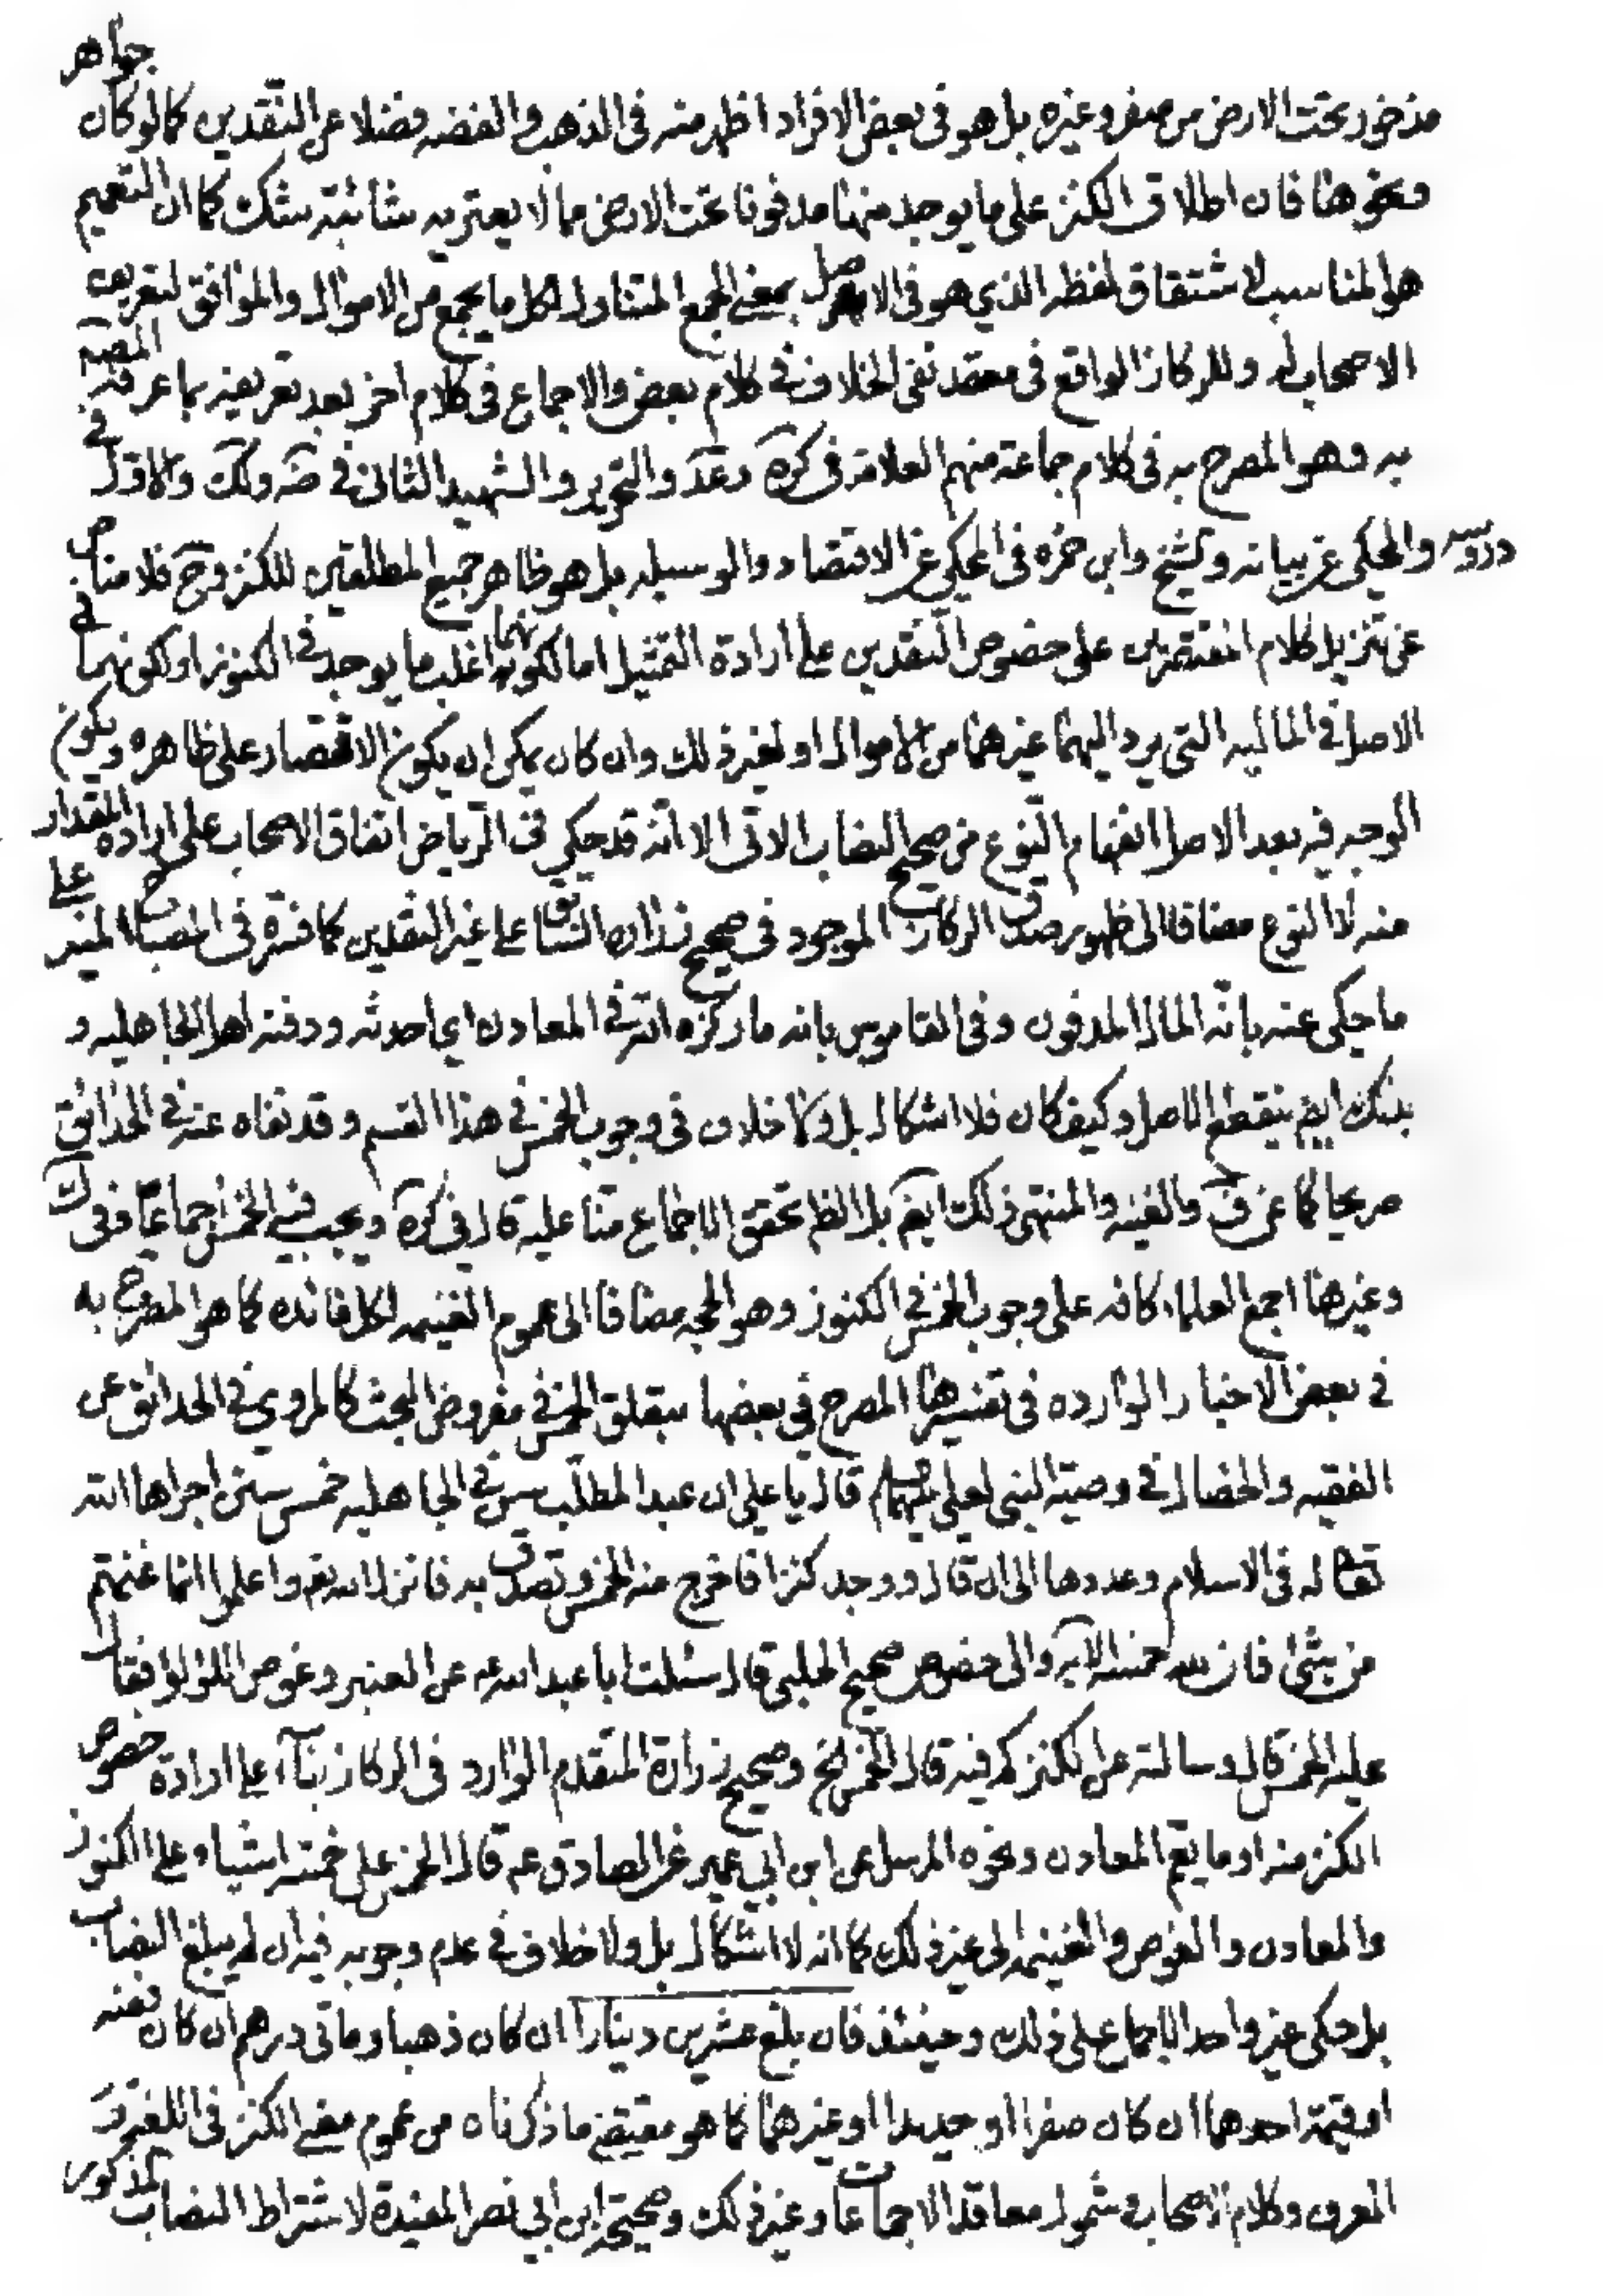 مذخور تحت الارض من صفر وغيره بل هو فى بعض الافراد اظهر منه فى الذهب والفضه فضلا عن النقدين كما لو كان جواهر
ونحوها فان اطلاق الكنز على ما يوجد منها مدفونا تحت الارض مما لا يعتريه شائبة شك كما ان التعميم
هو المناسب لاشتقاق لفظه الذي هو فى الاصل بمعنى الجمع المتناول لكل ما يجمع من الاموال والموافق لتعريف
الاصحاب له وللركاز الواقع فى معقد نفى الخلاف فى كلام بعض والاجماع فى كلام اخر بعد تعريفه بما عرفه المصنّف
به وهو المصرح به فى كلام جماعة منهم العلامة فى كره وعد والتحرير والشهيد الثانى فى ضه ولك والاول فى
دروسه والمحكى عن بيانه والشيخ وابن حمزه فى المحكى عن الاقتصاد والوسيله بل هو ظاهر جميع المطلقين للكنز وح فلا مناص
عن تنزيل كلام المقتصرين على خصوص النقدين على ارادة التمثيل اما لكونهما اغلب ما يوجد فى الكنوز او لكونهما
الاصل فى الماليه التى يرد اليهما غيرهما من الاموال او لغير ذلك وان كان يمكن ان يكون الاقتصار على ظاهره ويكون
الوجه فيه بعد الاصل انفهام النوع من صحيح النصاب الاتى الا انه قد حكي فى الرياض اتفاق الاصحاب على ارادة المقدار
منه لا النوع مضافا الى ظهور صدق الركاز الموجود فى صحيح زرارة السابق على غير النقدين كما فسره فى المصباح المنير على
ما حكى عنه بانه المال المدفون وفى القاموس بانه ما ركزه الله فى المعادن اي احدثه ودفنه اهل الجاهليه و
بذلك ايضم ينقطع الاصل وكيف كان فلا اشكال بل ولا خلاف فى وجوب الخمس فى هذا القسم وقد نفاه عنه فى الحدائق
صريحا كما عن ف والغنيه والمنتهى ذلك ايضم بل الظم تحقق الاجماع منا عليه قال فى كره ويجب فيه الخمس اجماعا وفى ك
وغيرها اجمع العلماء كافه على وجوب الخمس فى الكنوز وهو الحجه مضافا الى عموم الغنيمه لكل فائده كما هو المصرح به
فى بعض الاخبار الوارده فى تفسيرها المصرح فى بعضها بتعلق الخمس فى مفروض البحث كالمروي فى الحدائق عن
الفقيه والخصال فى وصية النبى لعلى قال يا على ان عبد المطلب سن فى الجاهليه خمس سنن اجراها الله
تعا له فى الاسلام وعددها الى ان قال ووجد كنزا فاخرج منه الخمس وتصدق به فانزل الله تعم واعلموا انما غنمتم
من شئ فان لله خمسه الايه والى خصوص صحيح الحلبى قال سئلت ابا عبد الله عه عن العنبر وغوص اللؤلؤ فقال
عليه الخمس قال وسالته عن الكنز كم فيه قال الخمس الخ وصحيح زرارة المتقدم الوارد فى الركاز بناء على ارادة خصوص
الكنز منه او ما يعم المعادن ونحوه المرسل عن ابن ابي عمير عن الصادق عه قال الخمس على خمسة اشياء على الكنوز
والمعادن والغوص والغنيمه الى غير ذلك كما انه لا اشكال بل ولا خلاف فى عدم وجوبه فيه ان لم يبلغ النصاب
بل حكى غير واحد الاجماع على ذلك وحينئذ فان بلغ عشرين دينارا ان كان ذهبا ومائى درهم ان كان فضه
او قيمة احدهما ان كان صفرا او حديدا او غيرهما كما هو مقتضى ما ذكرناه من عموم معنى الكنز فى اللغة و
العرف وكلام الاصحاب وشمول معاقد الاجماعات وغير ذلك وصحيحة ابن ابي نصر المفيدة لاشتراط النصاب المذكور